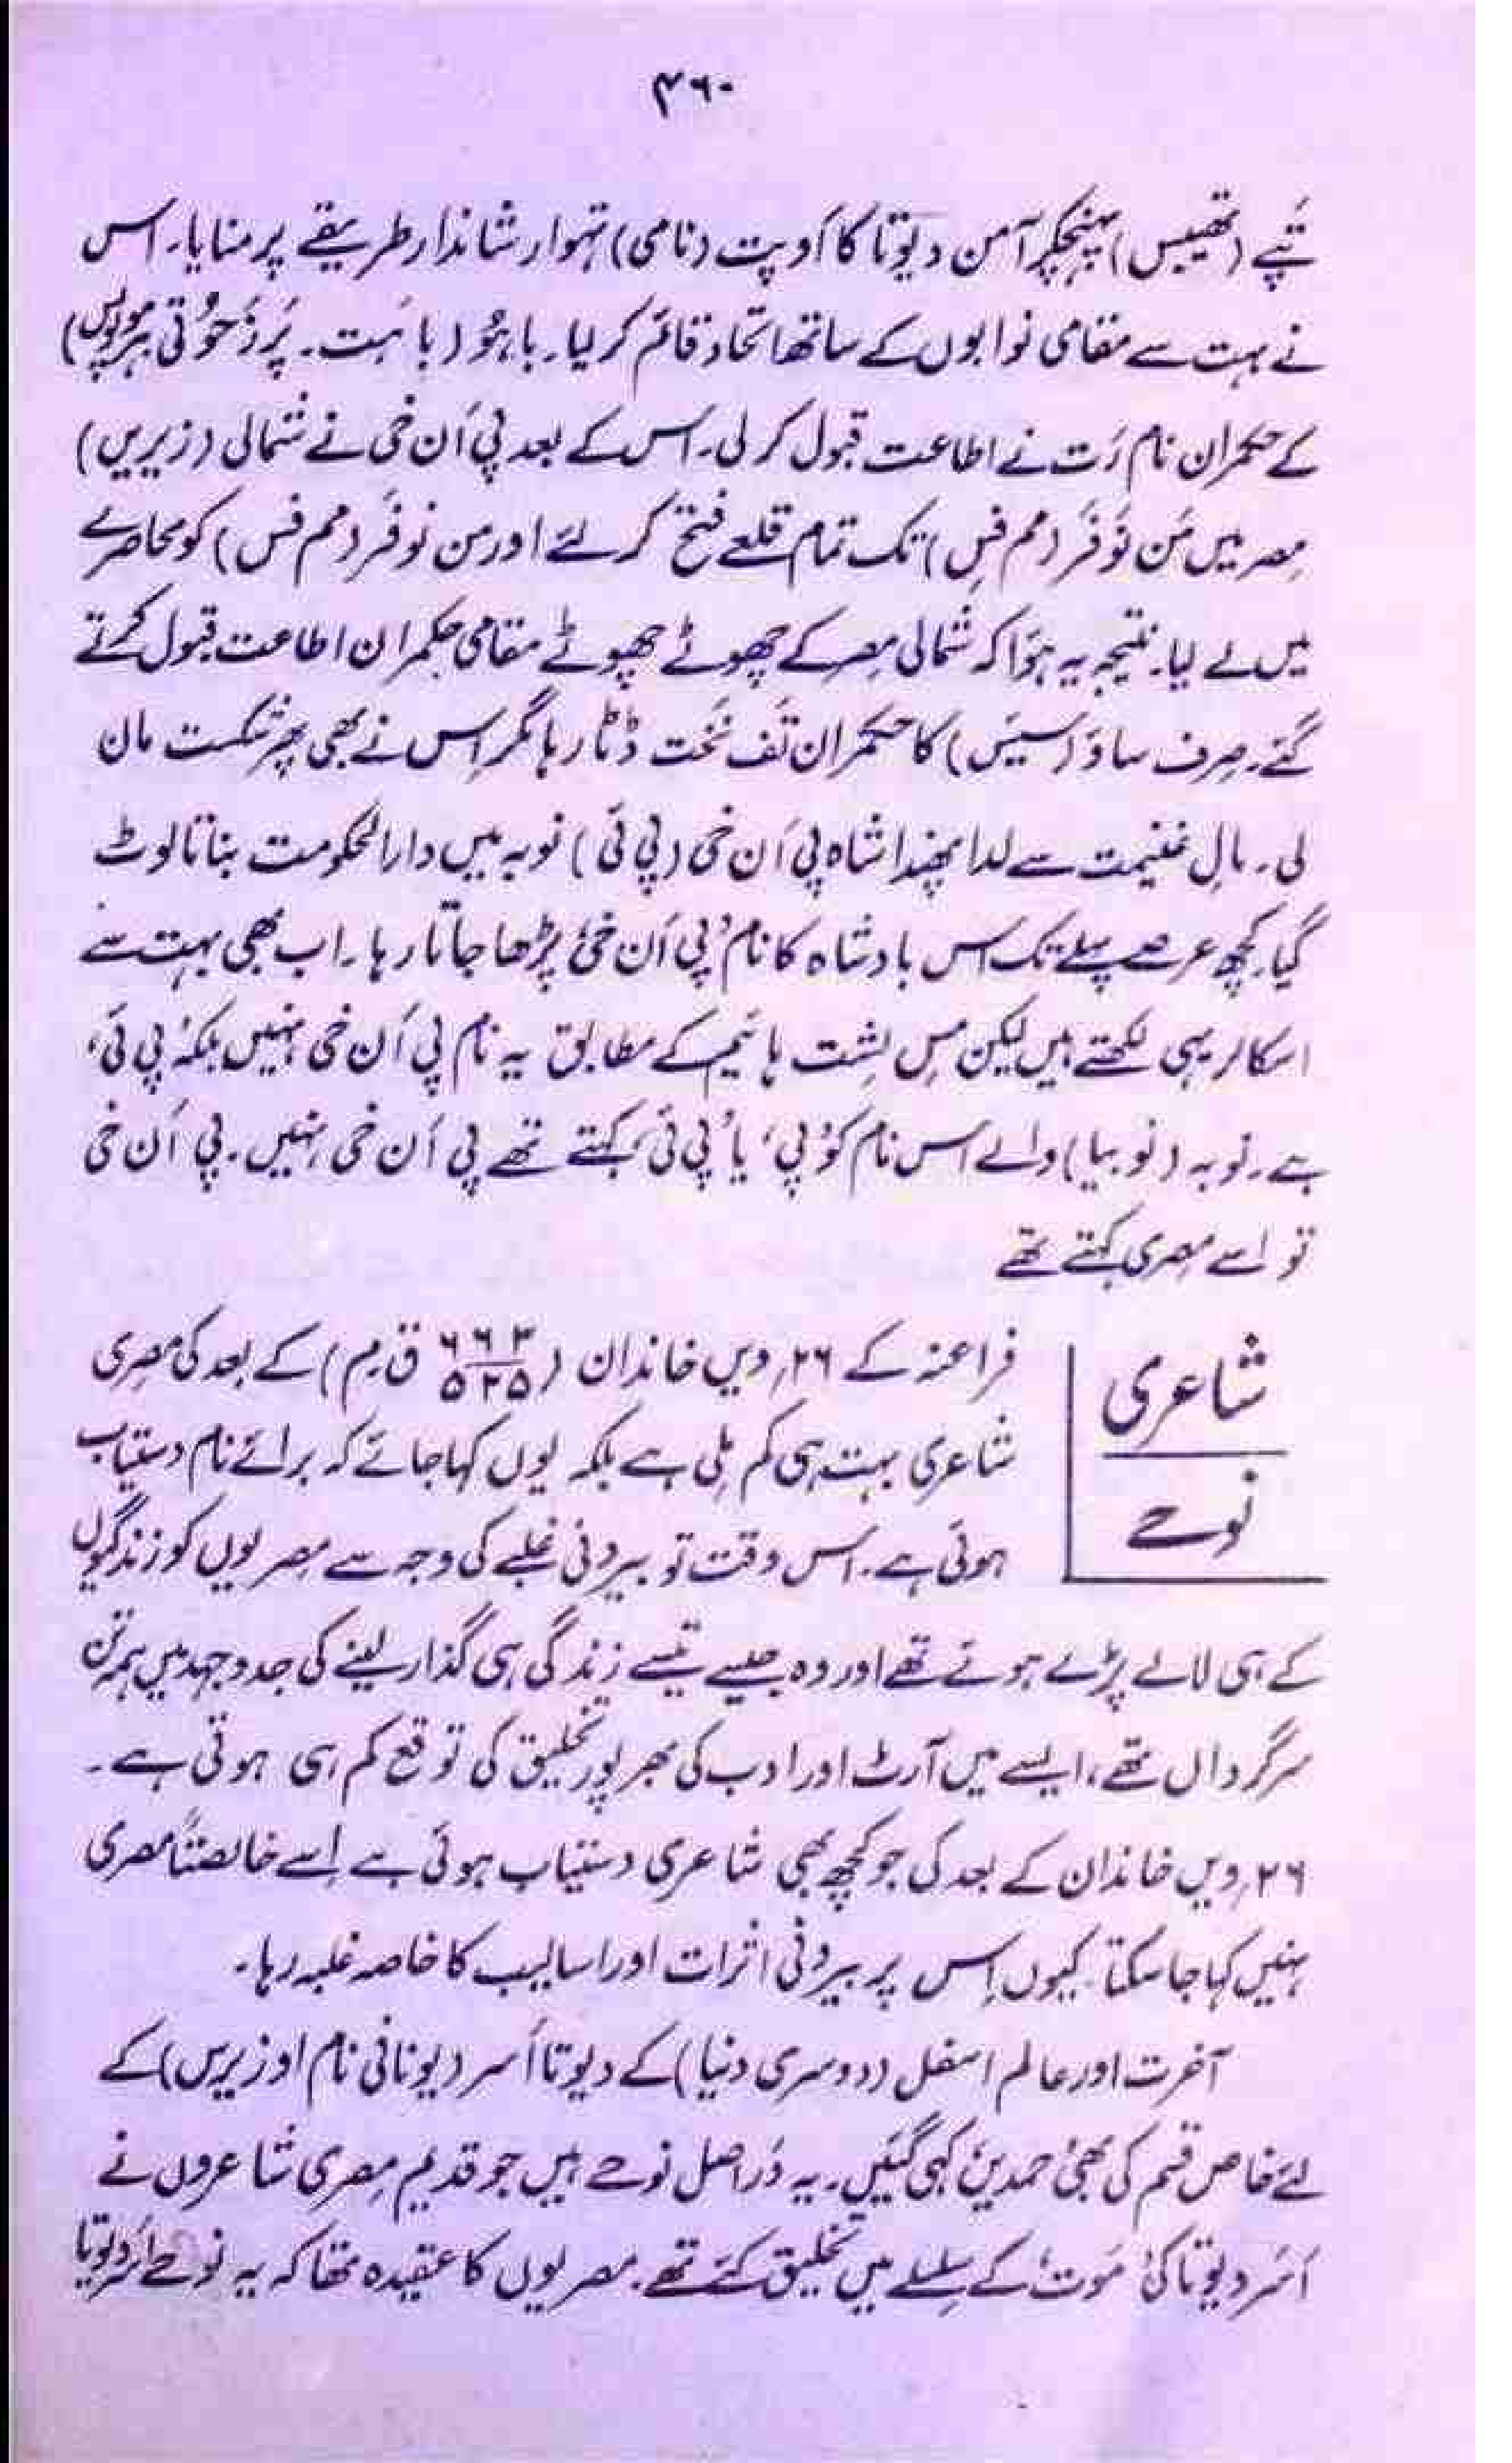 ۴۶۰
تپے (تھیبس) پہنچکر آمن دیوتا کا اَوپت (نامی) تہوار شاندار طریقے پر منایا۔ اس
نے بہت سے مقامی نوابوں کے ساتھ اتحاد قائم کر لیا۔ باہُو (باہَت۔ پَرذَحُوتی ہرموپولس)
کے حکمران نام رَت نے اطاعت قبول کر لی۔ اس کے بعد پی اَن خی نے شمالی (زیریں)
مِصر میں مَن نَوفَر (مم فِس) تک تمام قلعے فتح کر لئے اور من نوفَر (مم فس) کو محاصرے
میں لے لیا۔ نتیجہ یہ ہؤا کہ شمالی مِصر کے چھوٹے چھوٹے مقامی حکمران اطاعت قبول کرتے
گئے۔ صِرف ساؤ (سیئس) کا حکمران تَف نَخت ڈٹا رہا مگر اِس نے بھی پھر شکست مان
لی۔ مالِ غنیمت سے لدا پھندا شاہ پی اَن خی (پی ئی) نوبہ میں دارالحکومت بناتا لوٹ
گیا۔ کچھ عرصے پہلے تک اس بادشاہ کا نام ’پی اَن خی‘ پڑھا جاتا رہا۔ اب بھی بہت سے
اسکالر یہی لکھتے ہیں لیکن مِس لِشت ہائیم کے مطابق یہ نام پی اَن خی نہیں بلکہ ’پی ئی‘
ہے۔ نوبہ (نوبیا) والے اس نام کو ’پی‘ یا ’پی ئی‘ کہتے تھے پی اَن خی نہیں۔ پی اَن خی
تو اسے مِصری کہتے تھے
شاعری
نوحے
فراعنہ کے ۲۶ویں خاندان (۶۶۳/۵۲۵ ق.م) کے بعد کی مِصری
شاعری بہت ہی کم مِلی ہے بلکہ یوں کہا جائے کہ برائے نام دستیاب
ہوئی ہے۔ اس وقت تو بیرونی غلبے کی وجہ سے مِصریوں کو زندگیوں
کے ہی لالے پڑے ہوئے تھے اور وہ جیسے تیسے زندگی ہی گذار لینے کی جدوجہد میں ہمہ تن
سرگرداں تھے، ایسے میں آرٹ اور ادب کی بھرپور تخلیق کی توقع کم ہی ہوتی ہے۔
۲۶ویں خاندان کے بعد کی جو کچھ بھی شاعری دستیاب ہوئی ہے اِسے خالصتاً مصری
نہیں کہا جا سکتا۔ کیوں اِس پر بیرونی اثرات اور اسالیب کا خاصہ غلبہ رہا۔
آخرت اور عالم اسفل (دوسری دنیا) کے دیوتا اُسر (یونانی نام اوزیرس) کے
لئے خاص قسم کی بھی ’حمدیں‘ کہی گئیں۔ یہ دَراصل نوحے ہیں جو قدیم مِصری شاعروں نے
اَسَر دیوتا کی ’مَوت‘ کے سِلسلے میں تخلیق کئے تھے۔ مصریوں کا عقیدہ تھا کہ یہ نوحے اُسر دیوتا